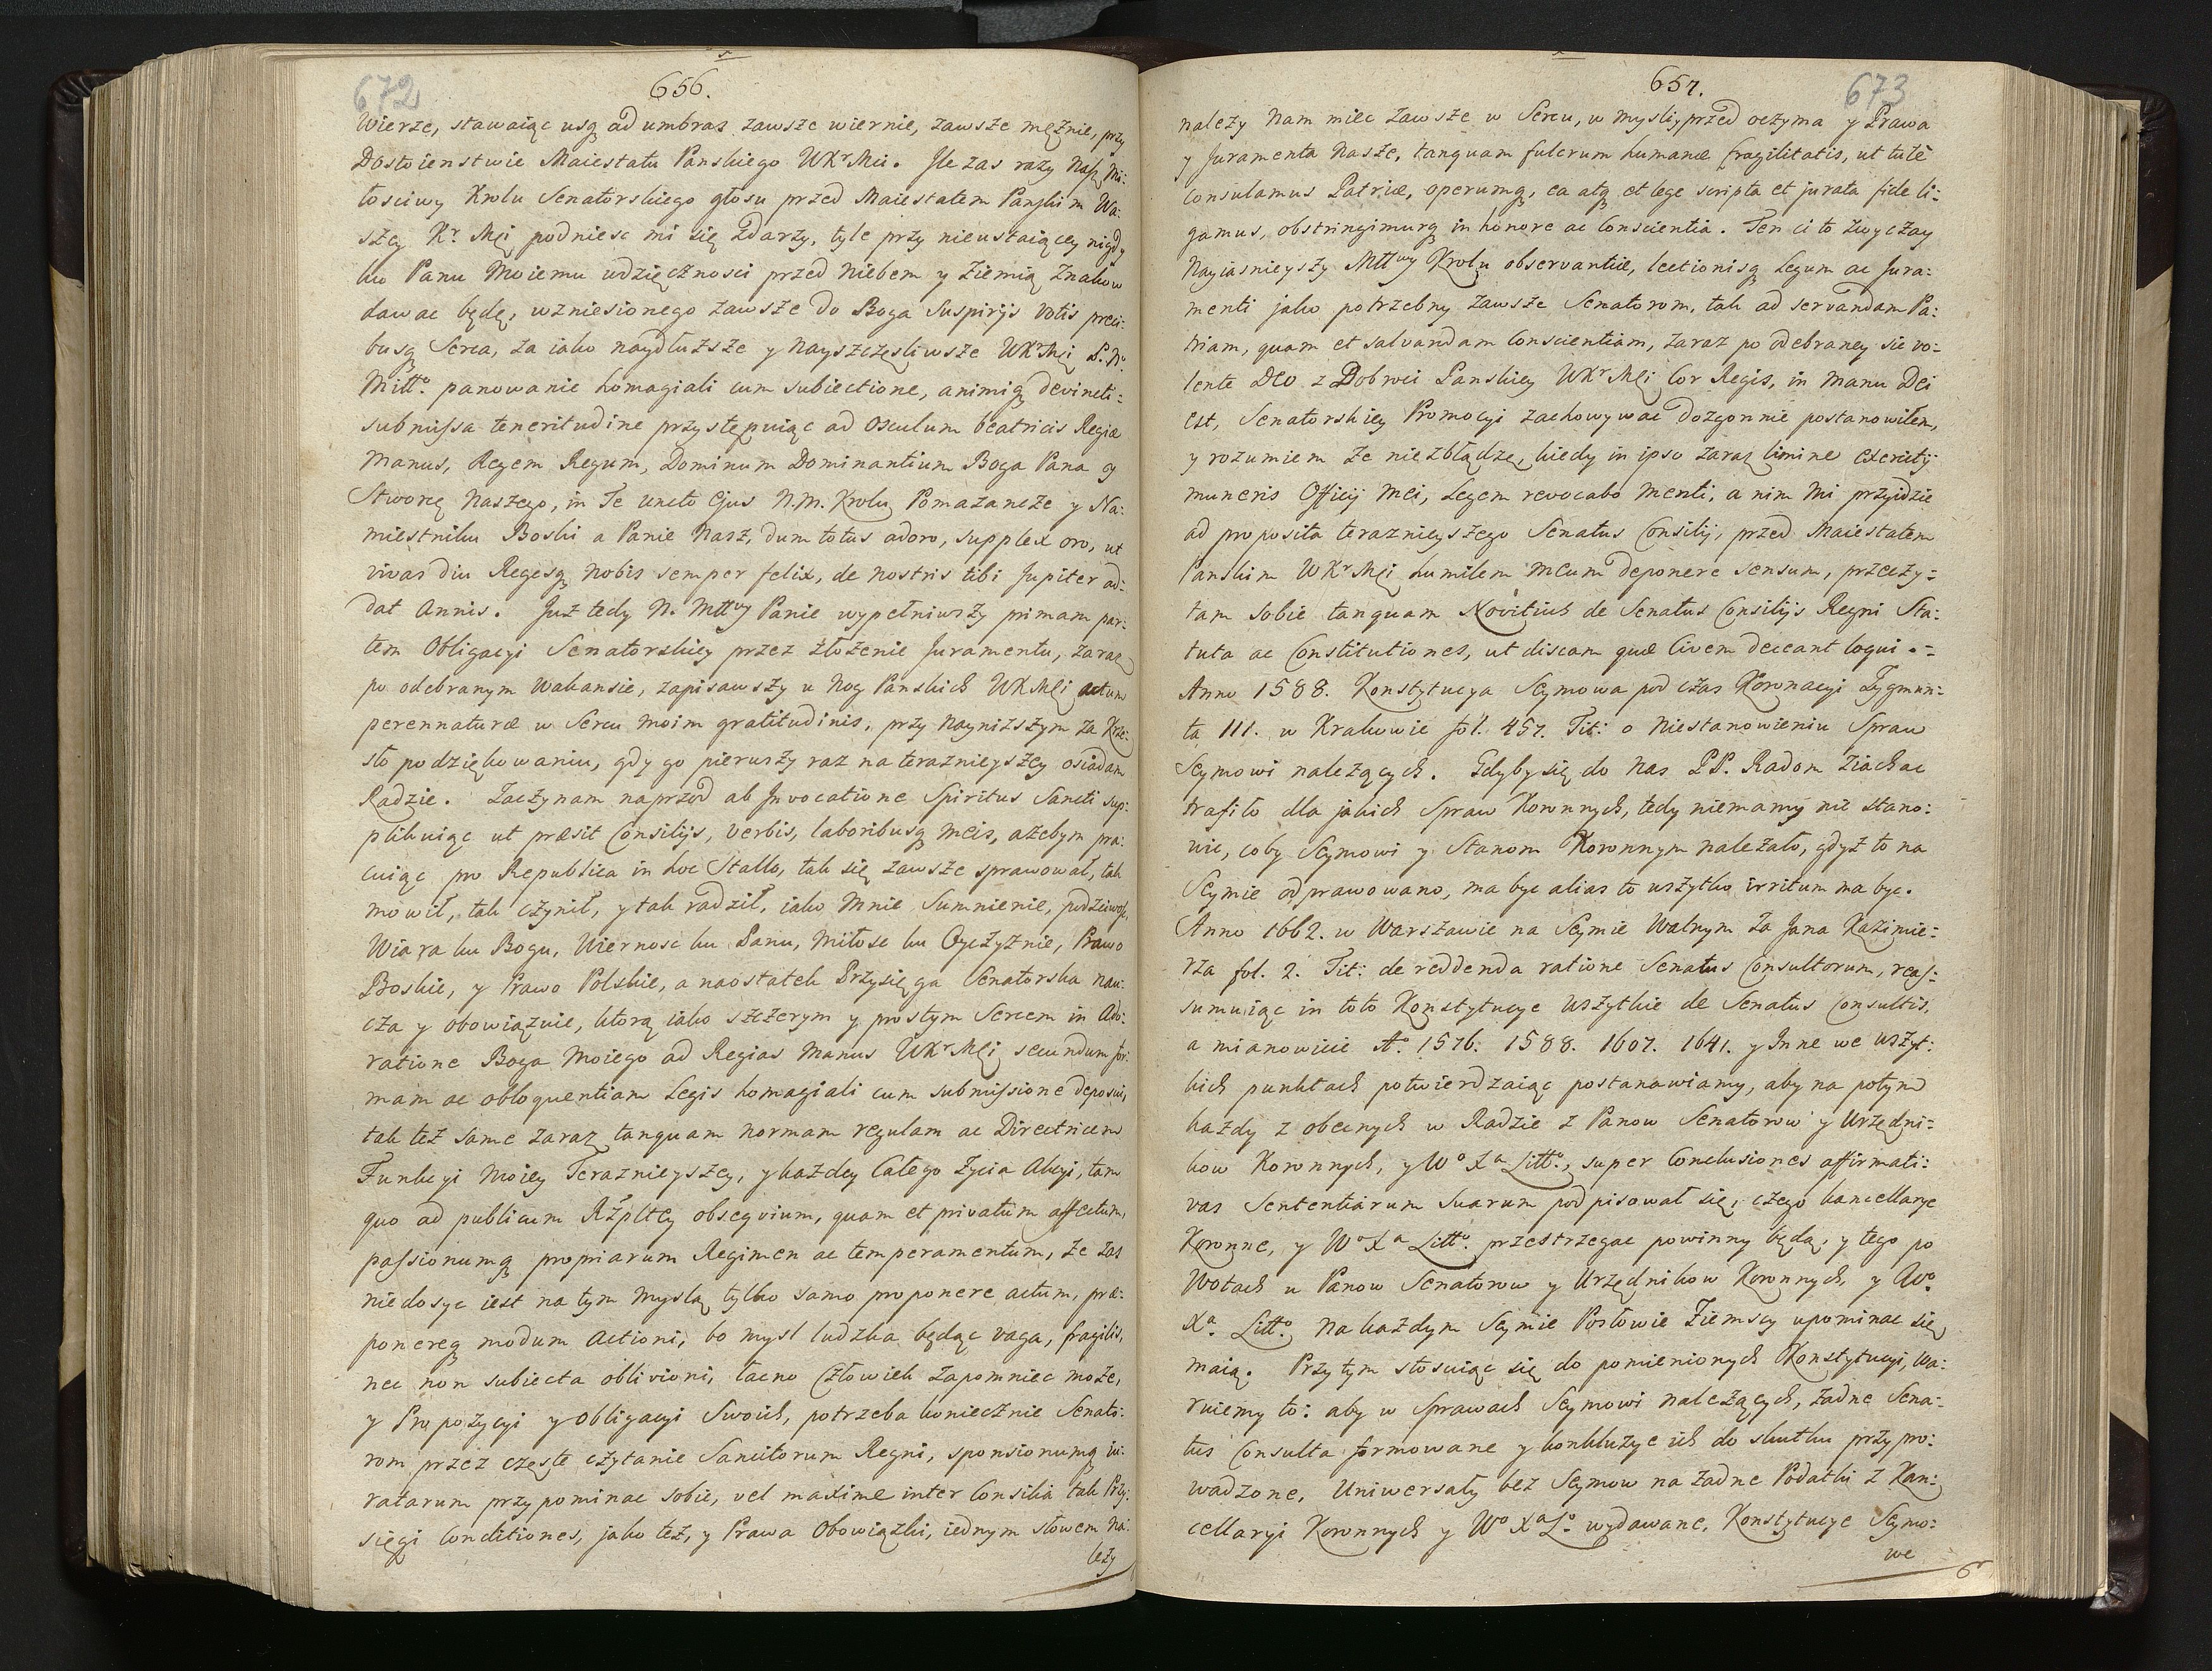 672
656.
Wierze, stawaiąc usq ad umbras zawsze wiernie, zawsze mężnie, przy
Dostoienstwie Maiestatu Panskiego WKrMci. Ile zas razy Nasz Mi:
łosciwy Krolu Senatorskiego głosu przed Maiestatem Panskim Wa:
szey Kr. Mci podniesc mi się zdarzy, tyle przy nieustaiącey nigdy
ku Panu Moiemu wdzięcznosci przed Niebem y Ziemią Znakow
dawac będę, wzniesionego zawsze do Boga Suspirijs votis preci:
busq Serca, za iako naydłuższe y Nayszczęsliwsze WKrMci P. N.
Miłło. panowanie homagiali cum subiectione, animiq devincti:
submissa teneritudine przystępuiąc ad Osculum beatricis Regiæ
Manus, Regem Regum, Dominum Dominantium Boga Pana y
Stworcę Naszego, in Te uncto Ejus N.M. Krolu Pomazancze y Na:
miestniku Boski a Panie Nasz, dum totus adoro, supplex oro, ut
vivas diu Regesq Nobis semper felix, de nostris tibi Jupiter ad:
dat Annis. Juz tedy N. Mttwy Panie wypełniwszy primam par:
tem Obligacyi Senatorskiey przez złożenie Juramentu, zaraz
po odebranym Wakansie, zapisawszy u Nog Panskich WKMci actum
perennaturæ w Sercu moim gratitudinis, przy Nayniższym za Krze:
sło podziękowaniu, gdy go pierwszy raz na teraznieyszey osiadam
Radzie. Zaczynam naprzod ab Invocatione Spiritus Sancti sup:
plikuiąc ut præsit Consilijs, verbis, laboribusq meis, azebym pra:
cuiąc pro Republica in hoc Stallo, tak się zawsze sprawował, tak
mowił, tak czynił, y tak radził, iako Mnie Sumnienie, podzciwosc,
Wiara ku Bogu, Wiernosc ku Panu, Miłosc ku Oyczyznie, Prawo
Boskie, y Prawo Polskie, a naostatek Przysięga Senatorska nau:
cza y obowiązuie, ktorą iako szczerym y prostym Sercem in Ado:
ratione Boga Moiego ad Regias Manus WKrMci secundum for:
mam ac obloquentiam Legis homagiali cum submissione deposui,
tak też same zaraz tanquam normam regulam ac Directricem
Funkcyi Moiey Teraznieyszey, y kazdey Całego Zycia Akcyi, tam
quo ad publicum Rzpltey obseqvium, quam et privatum affectum,
passionumq propriarum Regimen ac temperamentum, że zas
niedosyc iest na tym Myslą tylko samo proponere actum, præ:
ponereq modum Actioni, bo mysl ludzka będąc vaga, fragilis,
nec non subiecta oblivioni, łacno Człowiek Zapomniec może,
y Propozycyi y obligacyi Swoich, potrzeba koniecznie Senato:
rom przez częste czytanie Sancitorum Regni, sponsionumq iu:
ratarum przypominac sobie, vel maxime inter Consilia tak Przy:
sięgi Conditiones, jako też, y Prawa Obowiązki, iednym słowem Na:
leży
657.
673
nalezy Nam miec Zawsze w Sercu, w mysli, przed oczyma y Prawa
y Juramenta Nasze, tanquam fulcrum humanæ fragilitatis, ut tutè
Consulamus Patriæ, operumq, ea atq et lege scripta et jurata fide li:
gamus, obstringimurq in honore ac Conscientia. Ten ci to zwyczay
Nayiasnieyszy Mttwy Krolu observantiæ, lectionisq Legum ac Jura:
menti jako potrzebny Zawsze Senatorom, tak ad servandam Pa:
triam, quam et salvandam Conscientiam, zaraz po odebraney sic vo:
lente Deo z Dobroci Panskiey WKrMci Cor Regis, in Manu Dei
est, Senatorskiey Promocyi zachowywac dozgonnie postanowiłem,
y rozumiem że niezbłądzę, kiedy in ipso zaraz limine exercitij
muneris Officij Mei, Legem revocabo Menti, a nim Mi przyidzie
ad proposita teraznieyszego Senatus Consilij, przed Maiestatem
Panskim WKrMci humilem meum deponere sensum, przeczy:
tam sobie tanquam Novitius de Senatus Consilijs Regni Sta:
tuta ac Constitutiones, ut discam quæ Civem deceant loqui.
Anno 1588. Konstytucya Seymowa pod czas Koronacyi Zygmun:
ta III. w Krakowie fol. 457. Tit: o Niestanowieniu Spraw
Seymowi należących. Gdyby się do Nas PP. Radom Ziachac
trafiło dla jakich Spraw Koronnych, tedy niemamy nic stano:
wic, coby Seymowi y Stanom Koronnym należało, gdyż to na
Seymie odprawowano, ma byc alias to wszytko irritum ma byc.
Anno 1662. w Warszawie na Seymie Walnym za Jana Kazimie:
rza fol. 2. Tit: de reddenda ratione Senatus Consultorum, reas:
sumuiąc in toto Konstytucye wszytkie de Senatus Consultis,
a mianowicie Ao. 1576. 1588. 1607. 1641. y Inne we wszyt:
kich punktach potwierdzaiąc postanawiamy, aby na potym
kazdy z obecnych w Radzie z Panow Senatorow y Urzędni:
kow Koronnych, y Wo Xa Litto., super Conclusiones affirmati:
vas Sententiarum Suarum podpisował się, czego kancellarye
Koronne, y Wo Xa Litto. przestrzegac powinny będą, y tego po
Wotach u Panow Senatorow y Urzędnikow Koronnych, y Wo.
Xa. Litto. Na kazdym Seymie Posłowie Ziemscy upominac się
maią. Przytym stosuiąc się do pomienionych Konstytucyi, Wa:
ruiemy to: aby w Sprawach Seymowi należących, żadne Sena:
tus Consulta formowane y konkluzye ich do skutku przypro:
wadzone, Uniwersały bez Seymow na żadne Podatki z Kan:
cellaryi Koronnych y Wo XaLo. wydawane, Konstytucye Seymo:
we